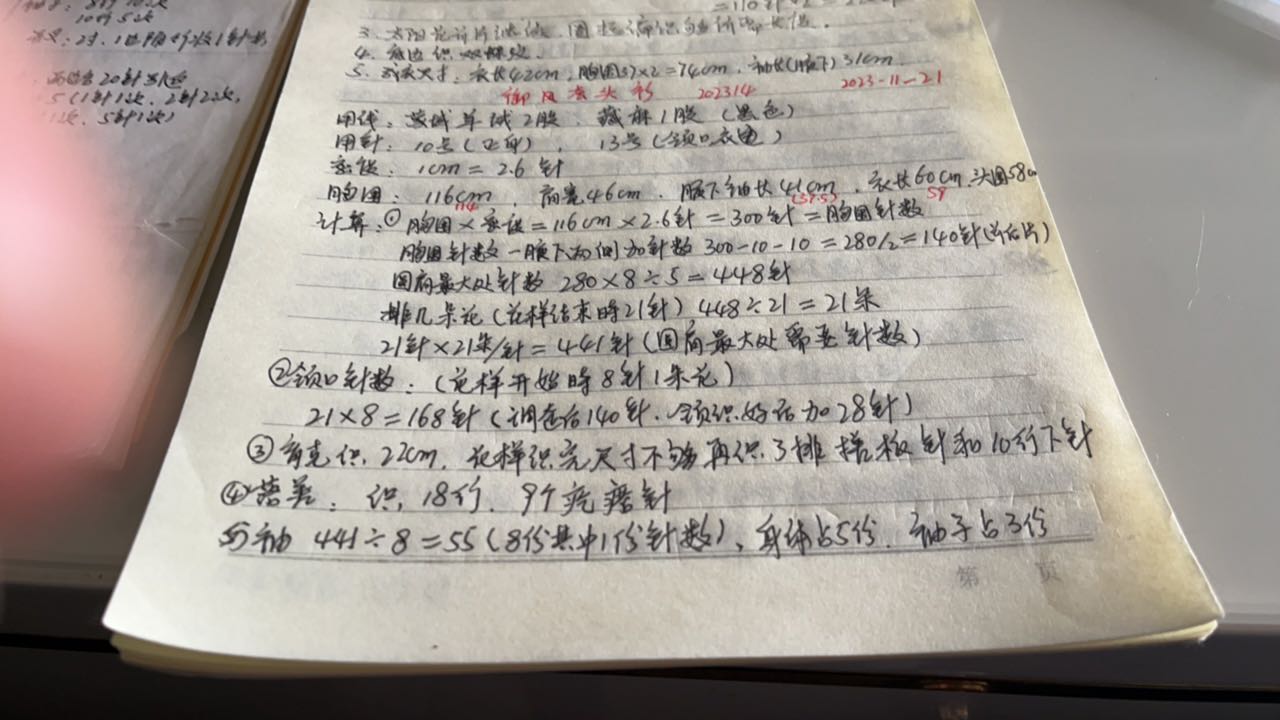 10行5次
两边各20针
5(1针1次、2针2次,
1次、5针1次)
4. 底边织双螺纹
衣长42cm、胸围37×2=74cm、袖长(腋下)31cm
御风套头衫 202314 2023-11-21
用线:羊绒2股、1股(黑色)
用针:10号(正身)、13号(领口衣边)
密度:1cm=2.6针
胸围:116cm、肩宽46cm、腋下袖长41cm、衣长60cm、头围58cm
114 (39.5) 59
计算:①胸围×密度=116cm×2.6针=300针=胸围针数
胸围针数-腋下两侧加针数 300-10-10=280/2=140针(前后片)
圆肩最大处针数 280×8÷5=448针
排几朵花(花样结束时21针) 448÷21=21朵
21针×21朵/针=441针(圆肩最大处需要针数)
②领口针数:(花样开始时8针1朵花)
21×8=168针(调查后140针、领织好后加28针)
③育克织22cm、花样织完尺寸不够再织3排 针和10行下针
④落差:织18行、9个疙瘩针
⑤袖 441÷8=55(8份其中1份针数)、身体占5份、袖子占3份
第 页